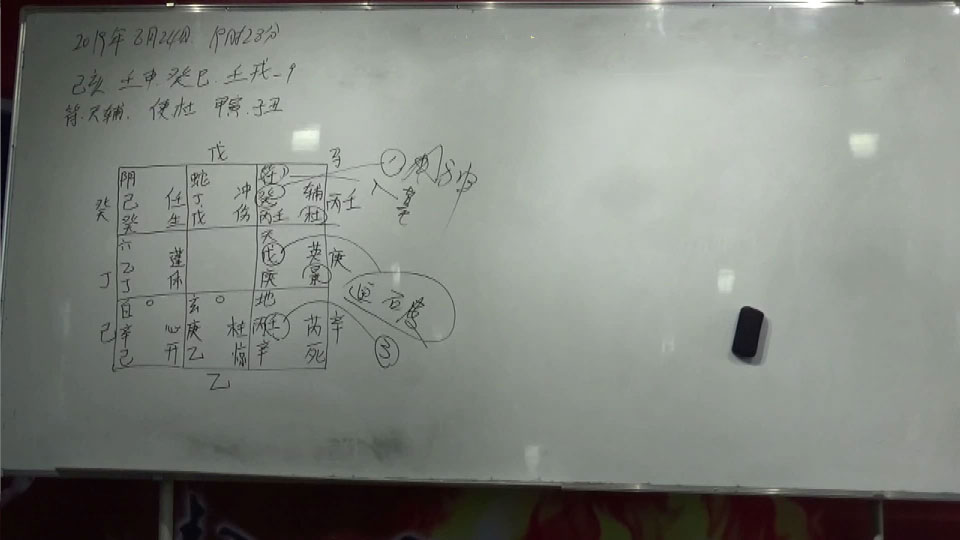 2019年8月24日 19时23分
己亥 壬申 癸巳 壬戌 -9
符天辅 使杜 甲寅 子丑
戊 马
阴 蛇 符
癸 己 任 丁 冲 癸 辅 丙壬
癸 生 戊 伤 丙壬 杜
六 天
乙 蓬 戊 英 庚
丁 丁 休 庚 景
白 玄 地
己 辛 心 庚 柱 丙壬 芮 辛
己 开 乙 惊 辛 死
乙
①
③